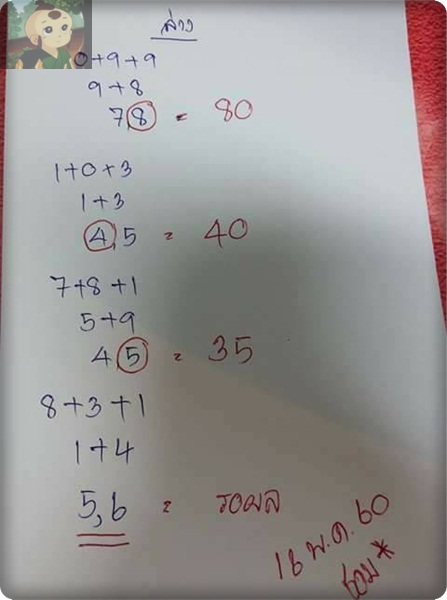 ล่าง
0+9+9
9+8
7,8 = 80
1+0+3
1+3
4,5 = 40
7+8+1
5+9
4,5 = 35
8+3+1
1+4
5,6 = รอผล
16 พ.ค. 60